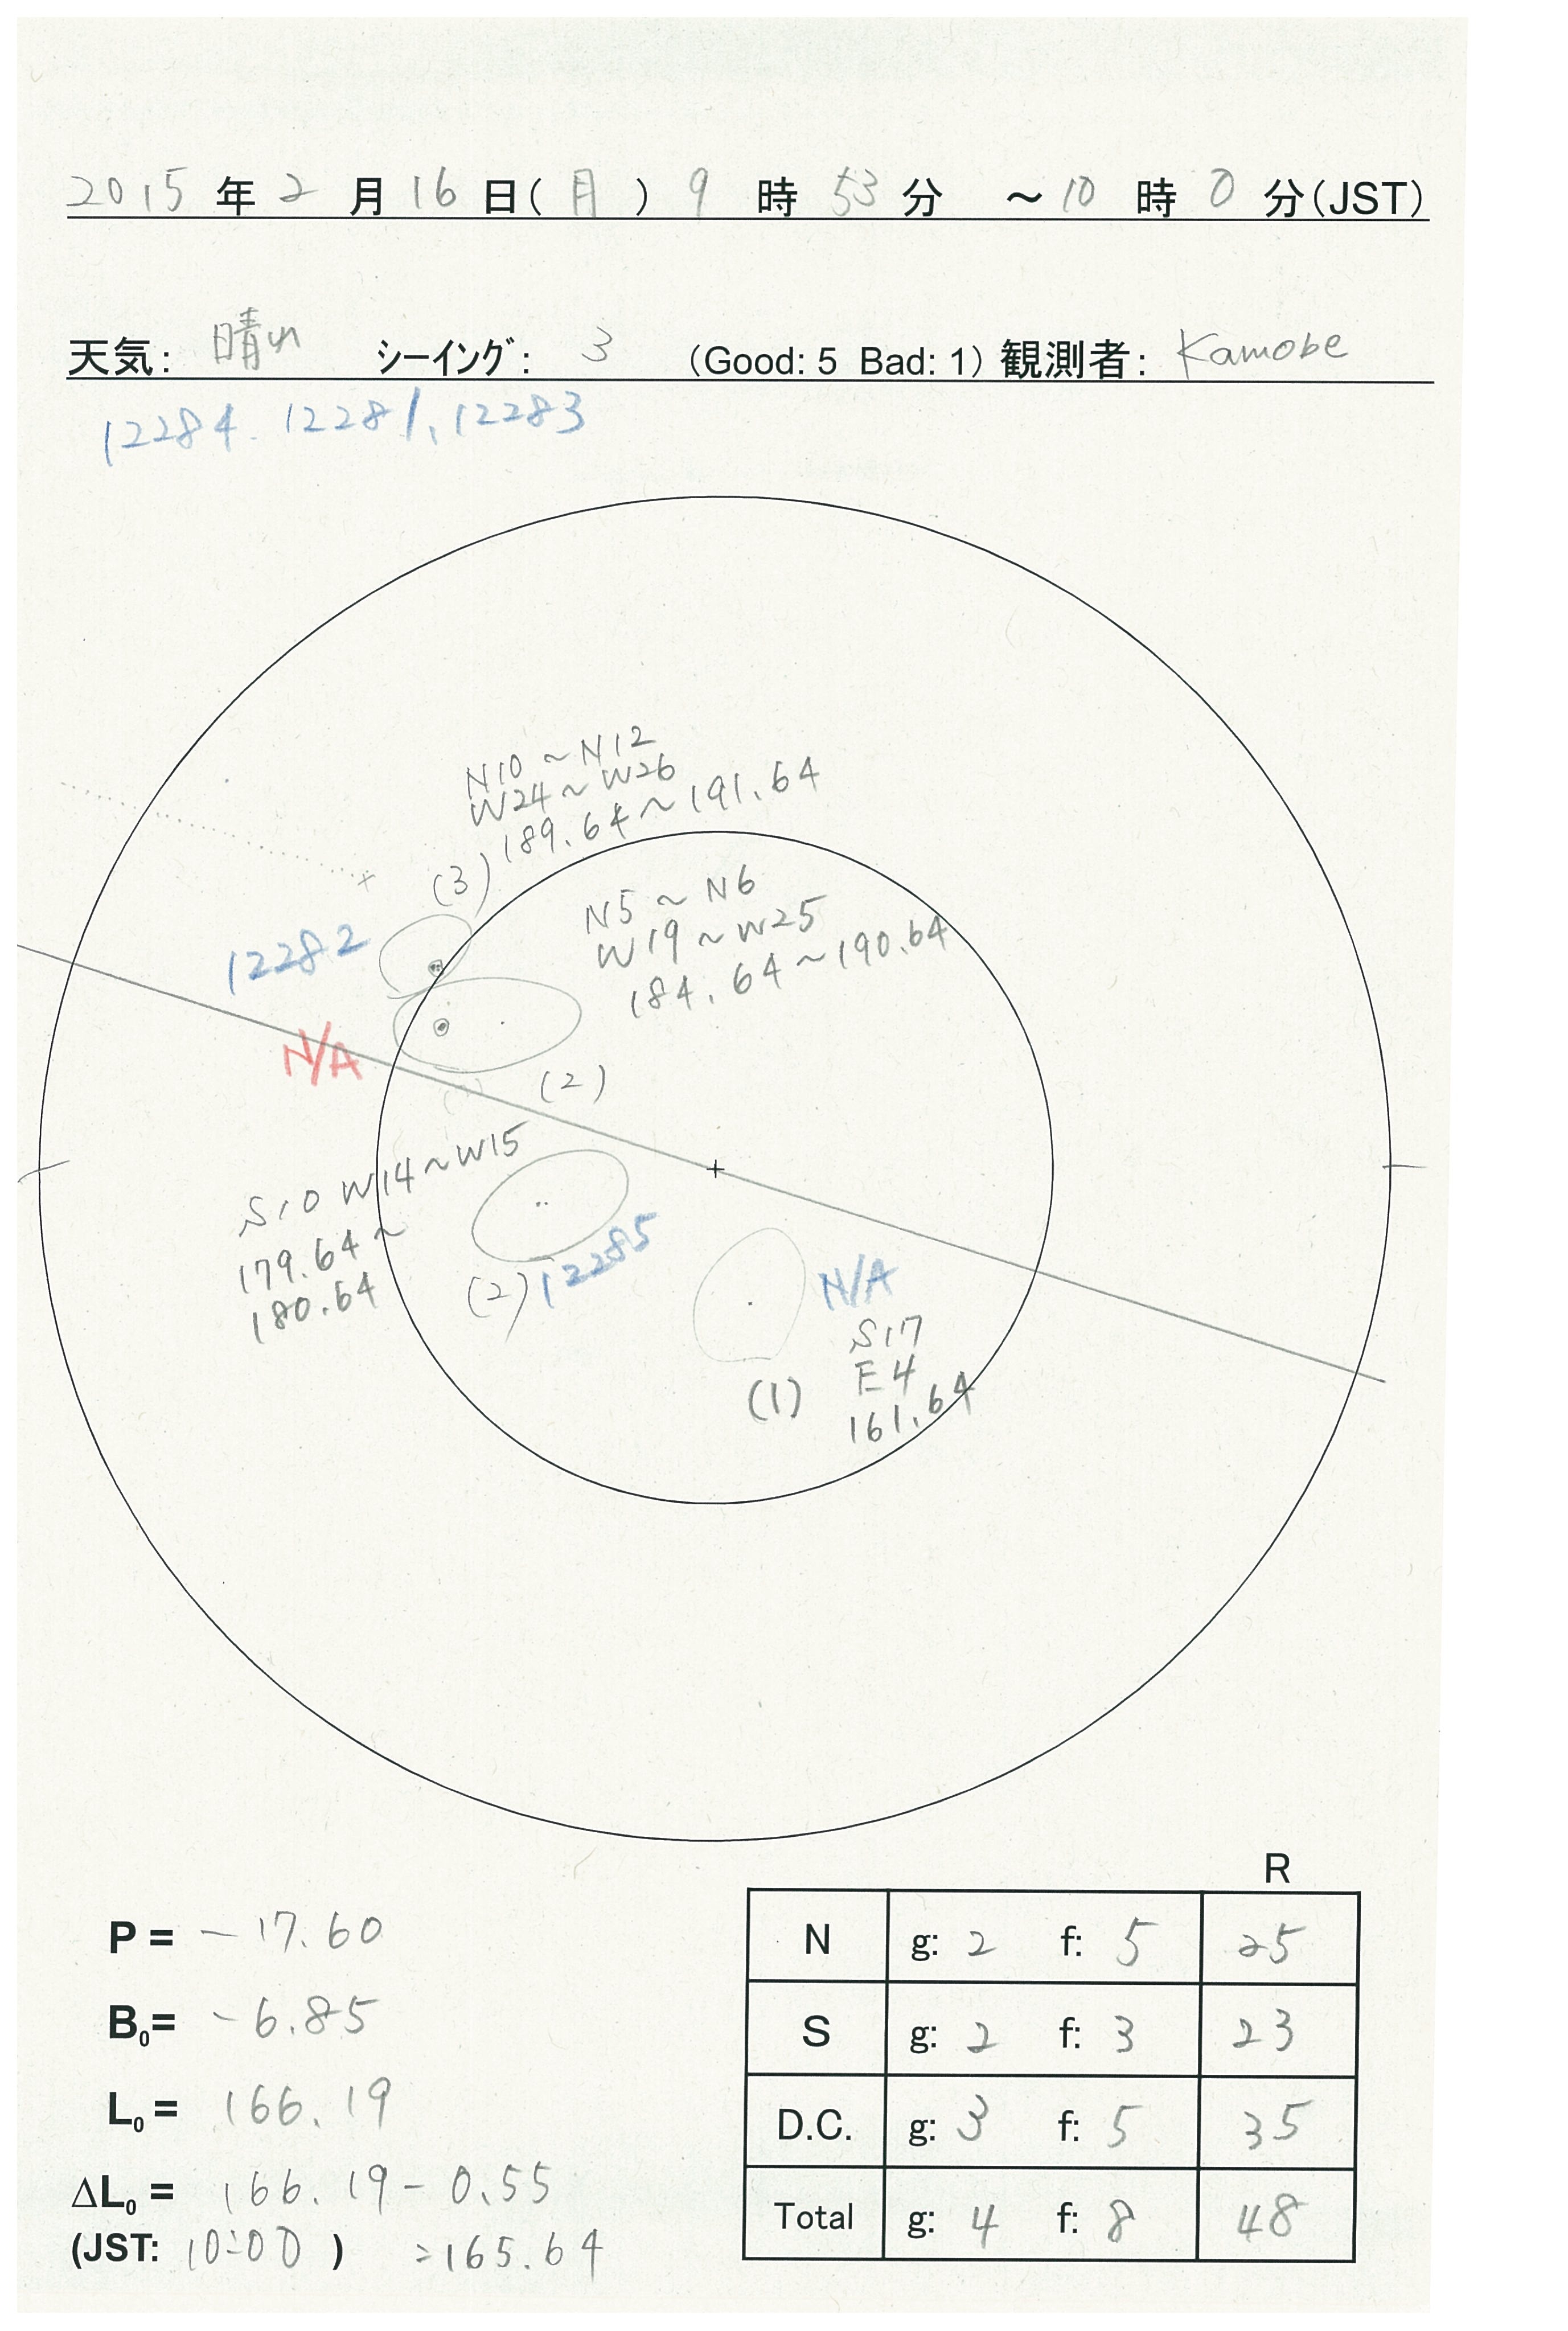 2015 年 2 月 16 日(月) 9 時 53 分 ～10 時 0 分(JST)
天気: 晴れ シーイング: 3 (Good: 5 Bad: 1) 観測者: Kamobe
12284. 12281, 12283
N10～N12
W24～W26
189.64～191.64
(3)
N5～N6
W19～W25
184.64～190.64
12282
N/A
(2)
S10 W14～W15
179.64～
180.64
(2) 12285
N/A
S17
E4
161.64
(1)
R
P = -17.60
N g: 2 f: 5 25
B₀= -6.85
S g: 2 f: 3 23
L₀= 166.19
D.C. g: 3 f: 5 35
ΔL₀= 166.19-0.55
(JST: 10:00 ) =165.64
Total g: 4 f: 8 48